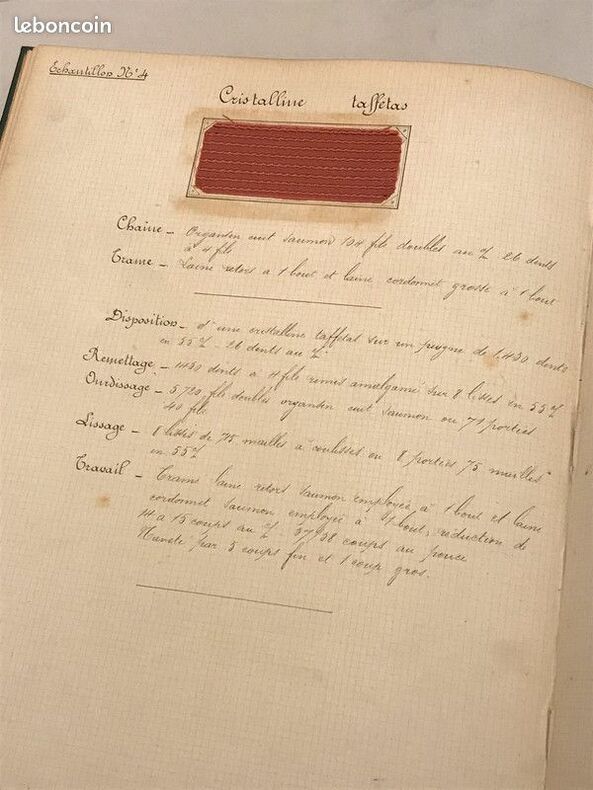 leboncoin
Echantillon N° 4
Cristalline taffetas
Chaine - Organsin cuit saumon 104 fils doubles au % 26 dents
à 4 fils
Trame - Laine retors à 1 bout et laine cordonnet grosse à 1 bout
Disposition - d'une cristalline taffetas sur un peigne de 1,430 dents
en 55 % - 26 dents au %
Remettage - 1430 dents à 4 fils remis amalgamé sur 8 lisses en 55 %
Ourdissage - 5,720 fils doubles organsin cuit saumon ou 71 portées
40 fils
Lissage - 8 lisses de 75 mailles à coulisses ou 8 portées 75 mailles
en 55 %
Travail - Trame laine retors saumon employée à 1 bout et laine
cordonnet saumon employée à 1 bout, réduction de
14 à 15 coups au % 37/38 coups au pouce
Navete par 5 coups fin et 1 coup gros.